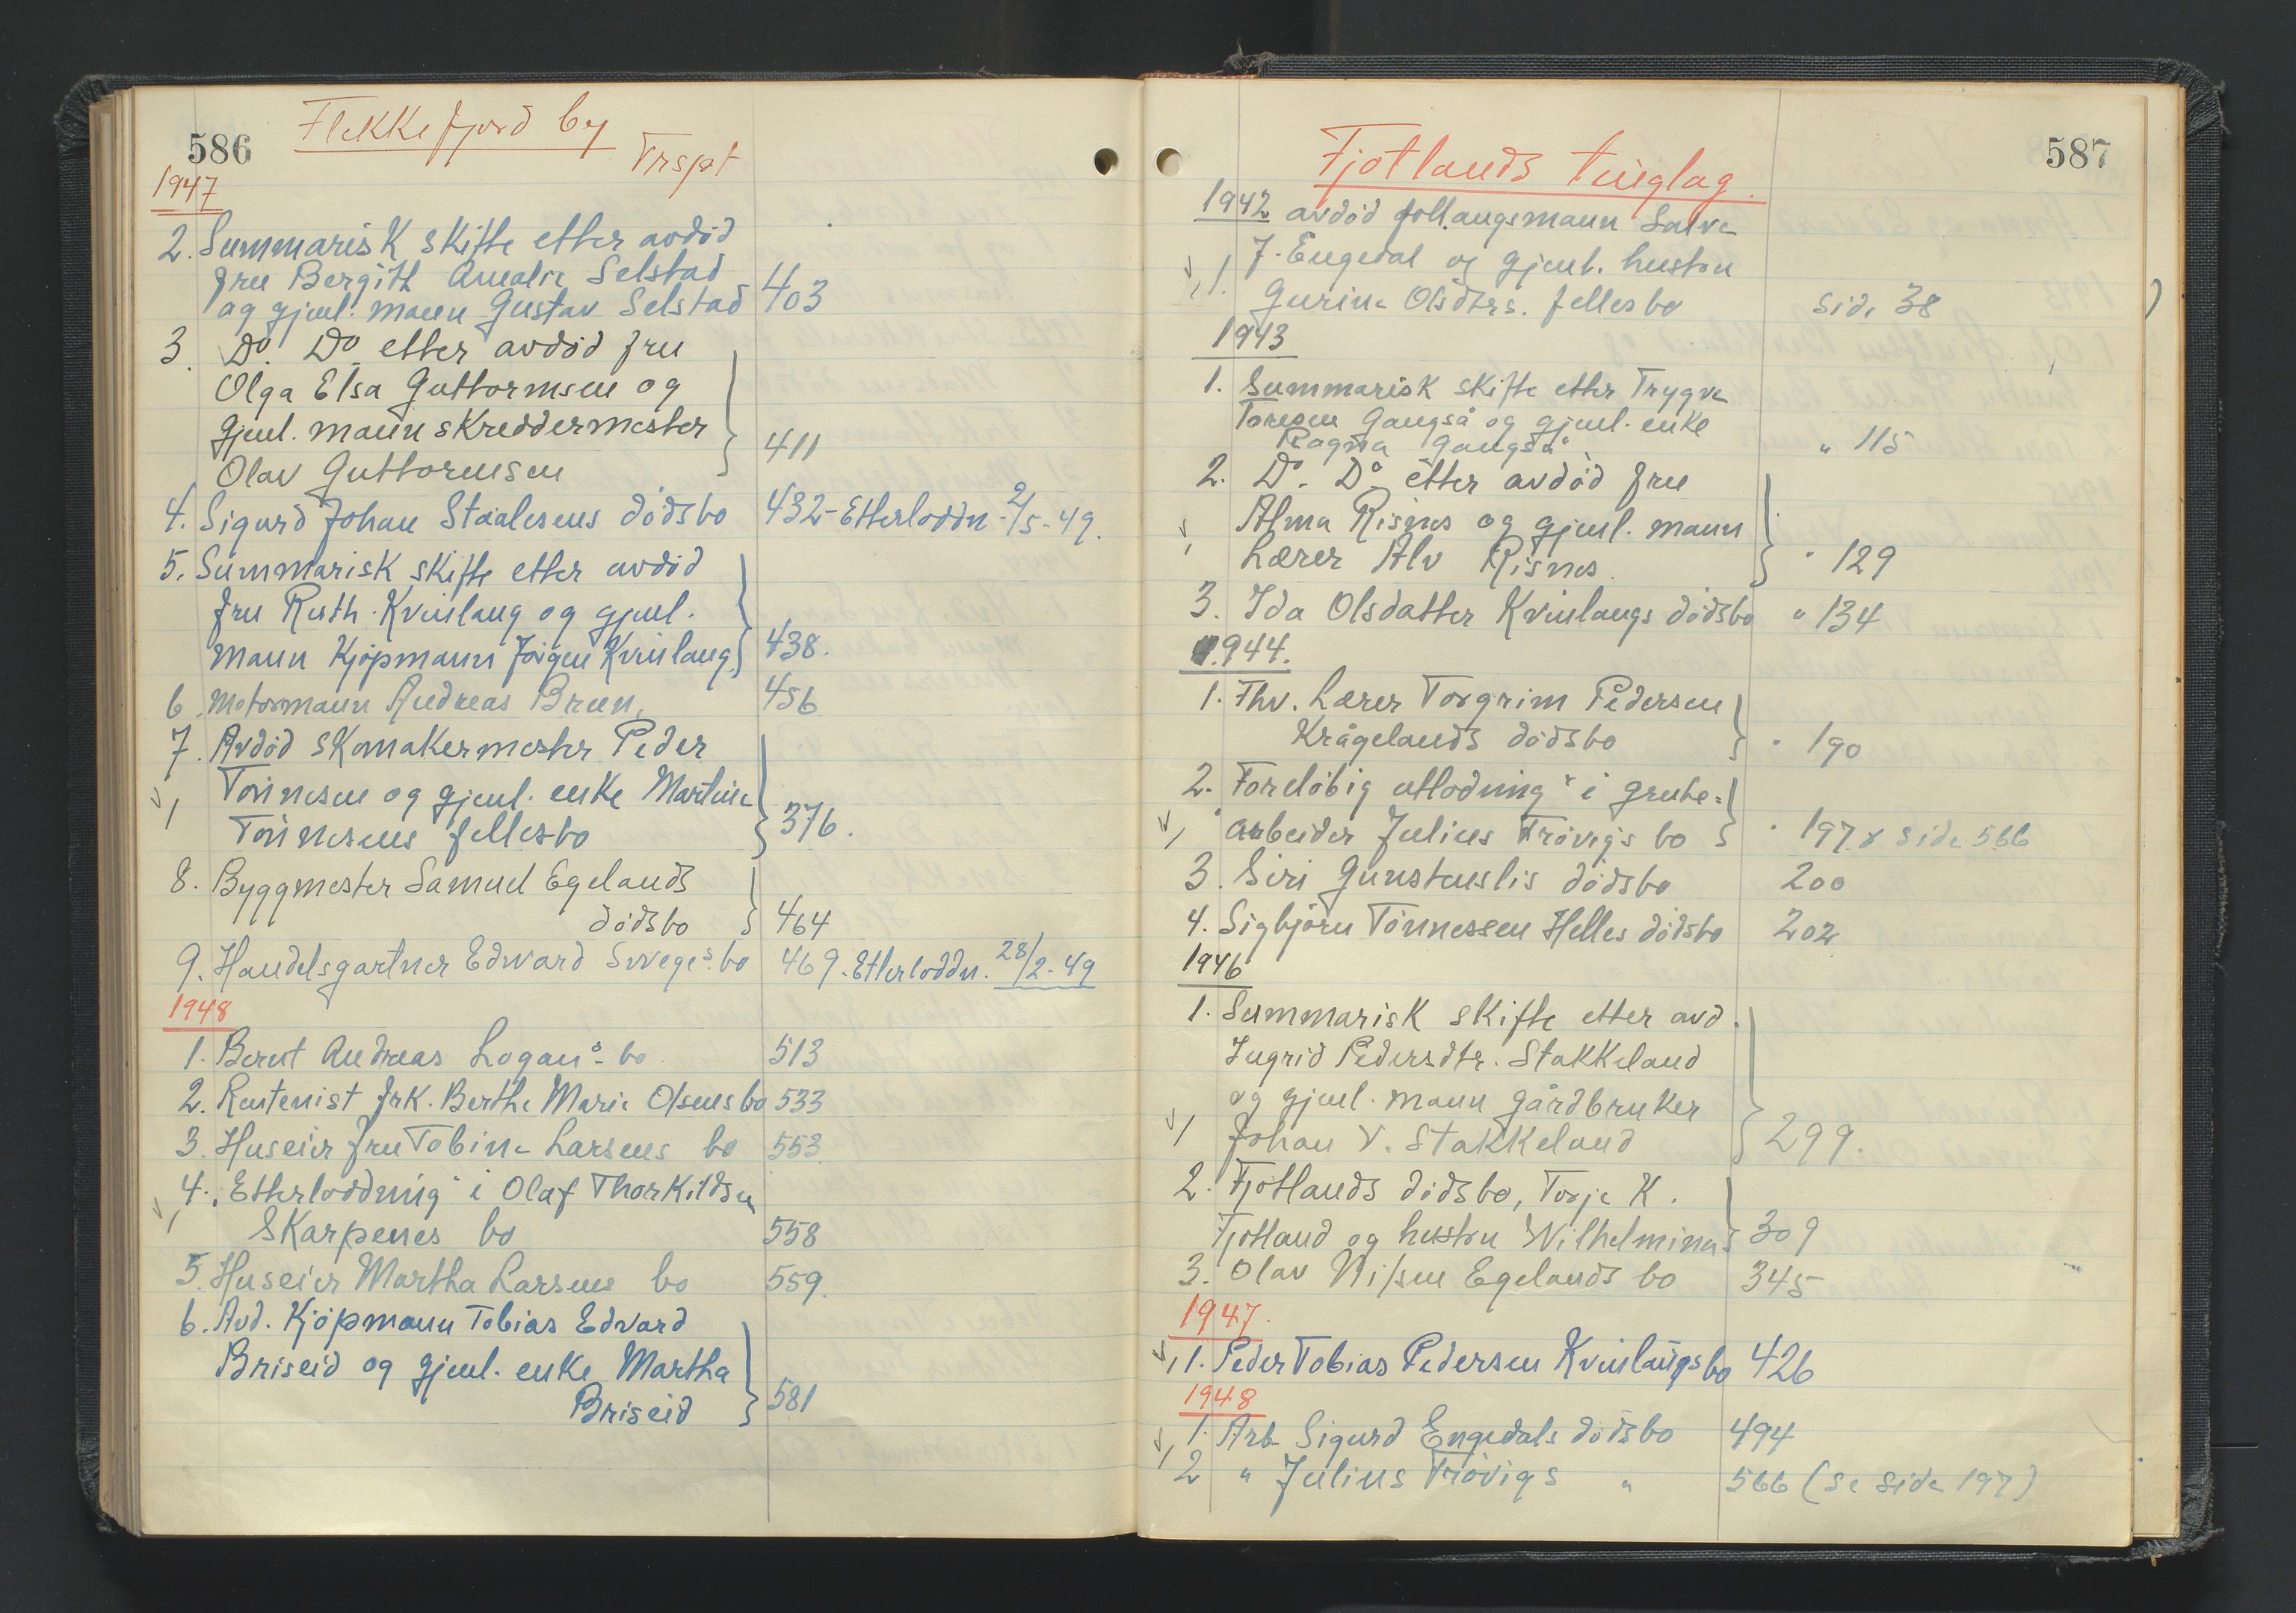 586
Flekkefjord by
Frspt
1947
2. Summarisk skifte etter avdöd
fru Bergith Amalie Selstad
og gjenl. mann Gustav Selstad 403
3. Do. Do etter avdöd fru
Olga Elsa Guttormsen og
gjenl. mann skreddermester
Olav Guttormsen 411
4. Sigurd Johan Staalesens dödsbo 432 - Etterloddn. 2/5-49.
5. Summarisk skifte etter avdöd
fru Ruth Kvinlaug og gjenl.
mann Kjöpmann Jörgen Kvinlaug 438.
6. Motormann Andreas Bruun, 456
7. Avdöd skomakermester Peder
Tönnesen og gjenl. enke Martine
Tönnesens fellesbo 376.
8. Byggmester Samuel Egelands
dödsbo 464
9. Handelsgartner Edward Sveges bo 469. Etterloddn. 28/2-49
1948
1. Bernt Andreas Logans bo 513
2. Rentenist frk. Berthe Marie Olsens bo 533
3. Huseier fru Tobine Larsens bo 553
4. "Etterlodding" i Olaf Thorkildsen
Skarpenes bo 558
5. Huseier Martha Larsens bo 559.
6. Avd. Kjöpmann Tobias Edvard
Briseid og gjenl. enke Martha
Briseid 581
587
Fjotlands tinglag.
1942 avdöd Salve
1. J. Engedal og gjenl. hustru
Gurine Olsdtrs. fellesbo side 38
1943
1. Summarisk skifte etter Trygve
Toresen Gangså og gjenl. enke
Ragna Gangså " 115
2. Do. Do. etter avdöd fru
Alma Risnes og gjenl. mann
Lærer Alv Risnes. " 129
3. Ida Olsdatter Kvinlaugs dödsbo " 134
1944.
1. Fhv. Lærer Torgrim Pedersen
Krågelands dödsbo " 190
2. "Forelöbig utlodning" i grube=
arbeider Julius Trövigs bo " 197 x side 566
3. Siri Gunstenslis dödsbo 200
4. Sigbjörn Tönnessen Helles dödsbo 202
1946
1. Summarisk skifte etter avd.
Ingrid Pedersdtr. Stakkeland
og gjenl. mann gårdbruker
Johan V. Stakkeland 299.
2. Fjotlands dödsbo, Torje K.
Fjotland og hustru Wilhelmina 309
3. Olav Nilsen Egelands bo 345
1947.
1. Peder Tobias Pedersen Kvinlaugs bo 426
1948
1. Arb. Sigurd Engedals dödsbo 494
2 " Julius Trövigs " 566 (se side 197)